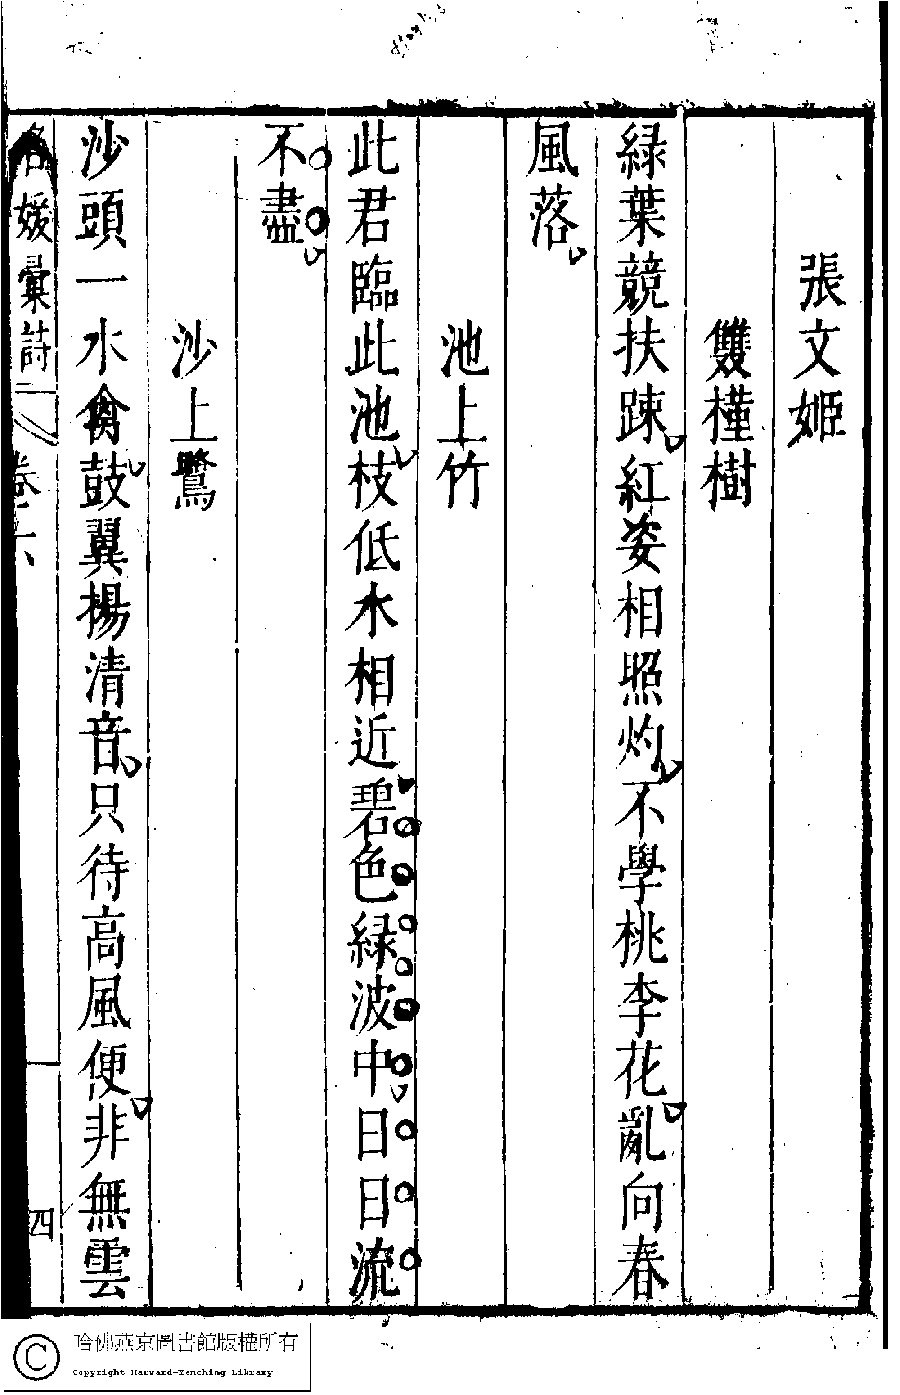 張文姬
雙槿樹
緑葉競扶踈紅姿相照灼不學桃李花亂向春
風落
池上竹
此君臨此池枝低水相近碧色緑波中日日流
不盡
沙上鷺
沙頭一水禽鼓翼揚清音只待高風便非無雲
名媛彙詩
卷六
四
哈佛燕京圖書館版權所有
Copyright Harvard-Yenching Library